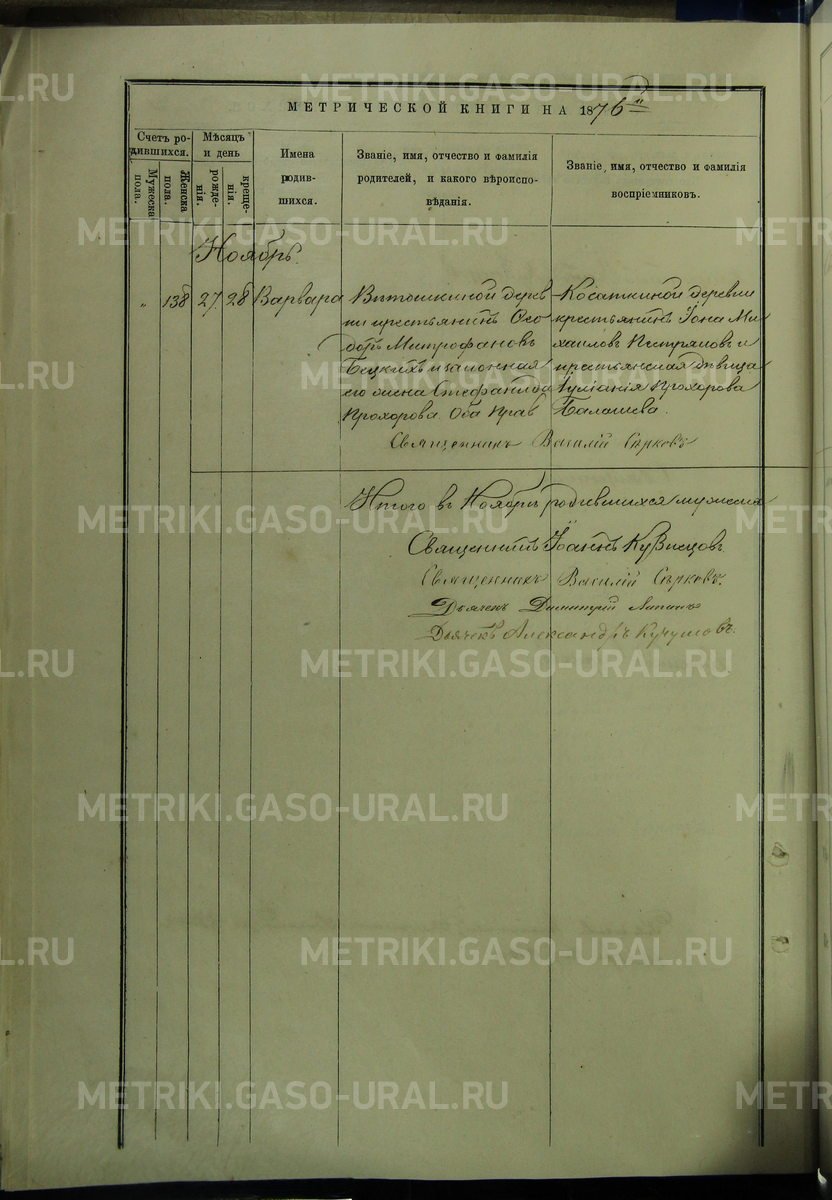 МЕТРИЧЕСКОЙ КНИГИ НА 1876й
Счетъ ро-
дившихся.
Мужеска
пола.
Женска
пола.
Мѣсяцъ
и день
рожде-
нія.
креще-
нія.
Имена
родив-
шихся.
Званіе, имя, отчество и фамилія
родителей, и какого вѣроиспо-
вѣданія.
Званіе, имя, отчество и фамилія
воспріемниковъ.
Ноябрь.
" 138 27. 28 Варвара
дерев
ни крестьянинъ Ѳео
доръ Митрофановъ
и законная
его жена Стефанида
Прохорова Оба Прав
Косаткиной деревни
крестьянинъ Іона Ми-
хаиловъ и
крестьянская дѣвица
Іуліанія Прохорова
Балашева.
Священникъ Василій Сѣрковъ
Итого въ Ноябрѣ родившихся мужеска
Священникъ Іоаннъ
Священникъ Василій Сѣрковъ.
Дьячекъ Димитрій
Дьячекъ Александръ
METRIKI.GASO-URAL.RU